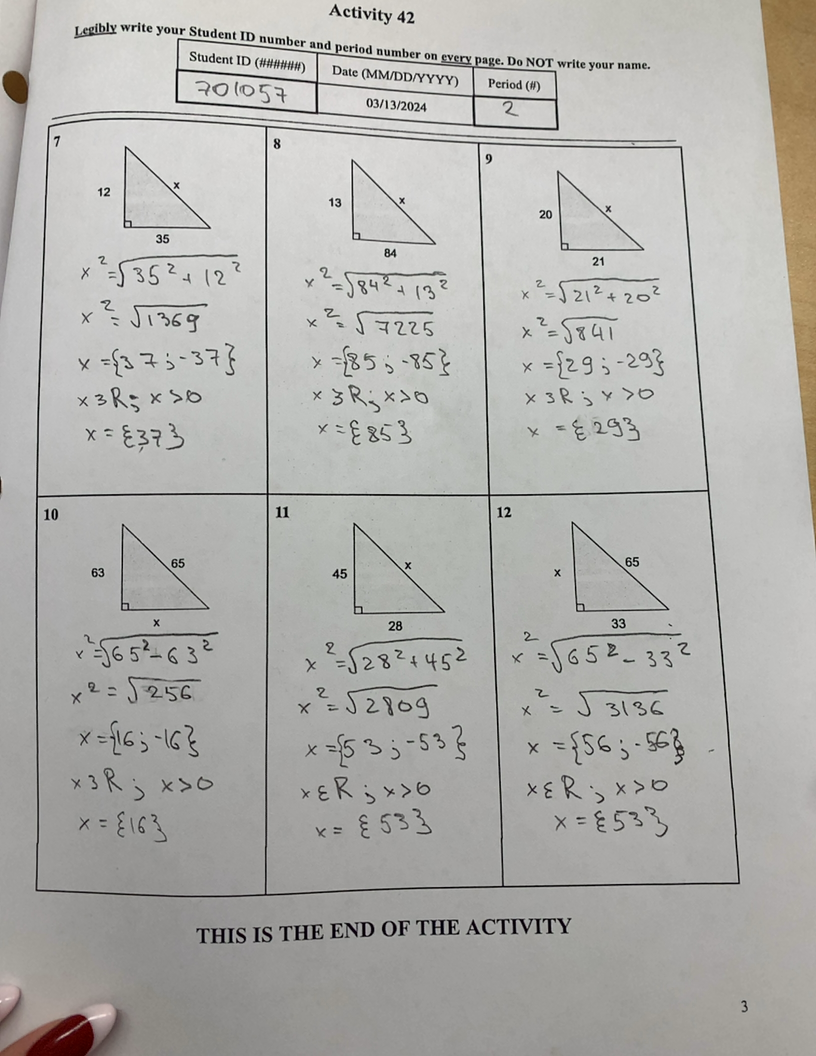 Activity 42
Legibly write your Student ID number and period number on every page. Do NOT write your name.
Student ID (######) Date (MM/DD/YYYY) Period (#)
701057 03/13/2024 2
7
12
x
35
x²=√35²+12²
x²=√1369
x={37;-37}
xƷR; x>0
x={37}
8
13
x
84
x²=√84²+13²
x²=√7225
x={85;-85}
xƷR;x>0
x={85}
9
20
x
21
x²=√21²+20²
x²=√841
x={29;-29}
xƷR;x>0
x={29}
10
63
65
x
x²=√65²-63²
x²=√256
x={16;-16}
xƷR; x>0
x={16}
11
45
x
28
x²=√28²+45²
x²=√2809
x={53;-53}
xƐR;x>0
x={53}
12
x
65
33
x²=√65²-33²
x²=√3136
x={56;-56}
xƐR;x>0
x={53}
THIS IS THE END OF THE ACTIVITY
3